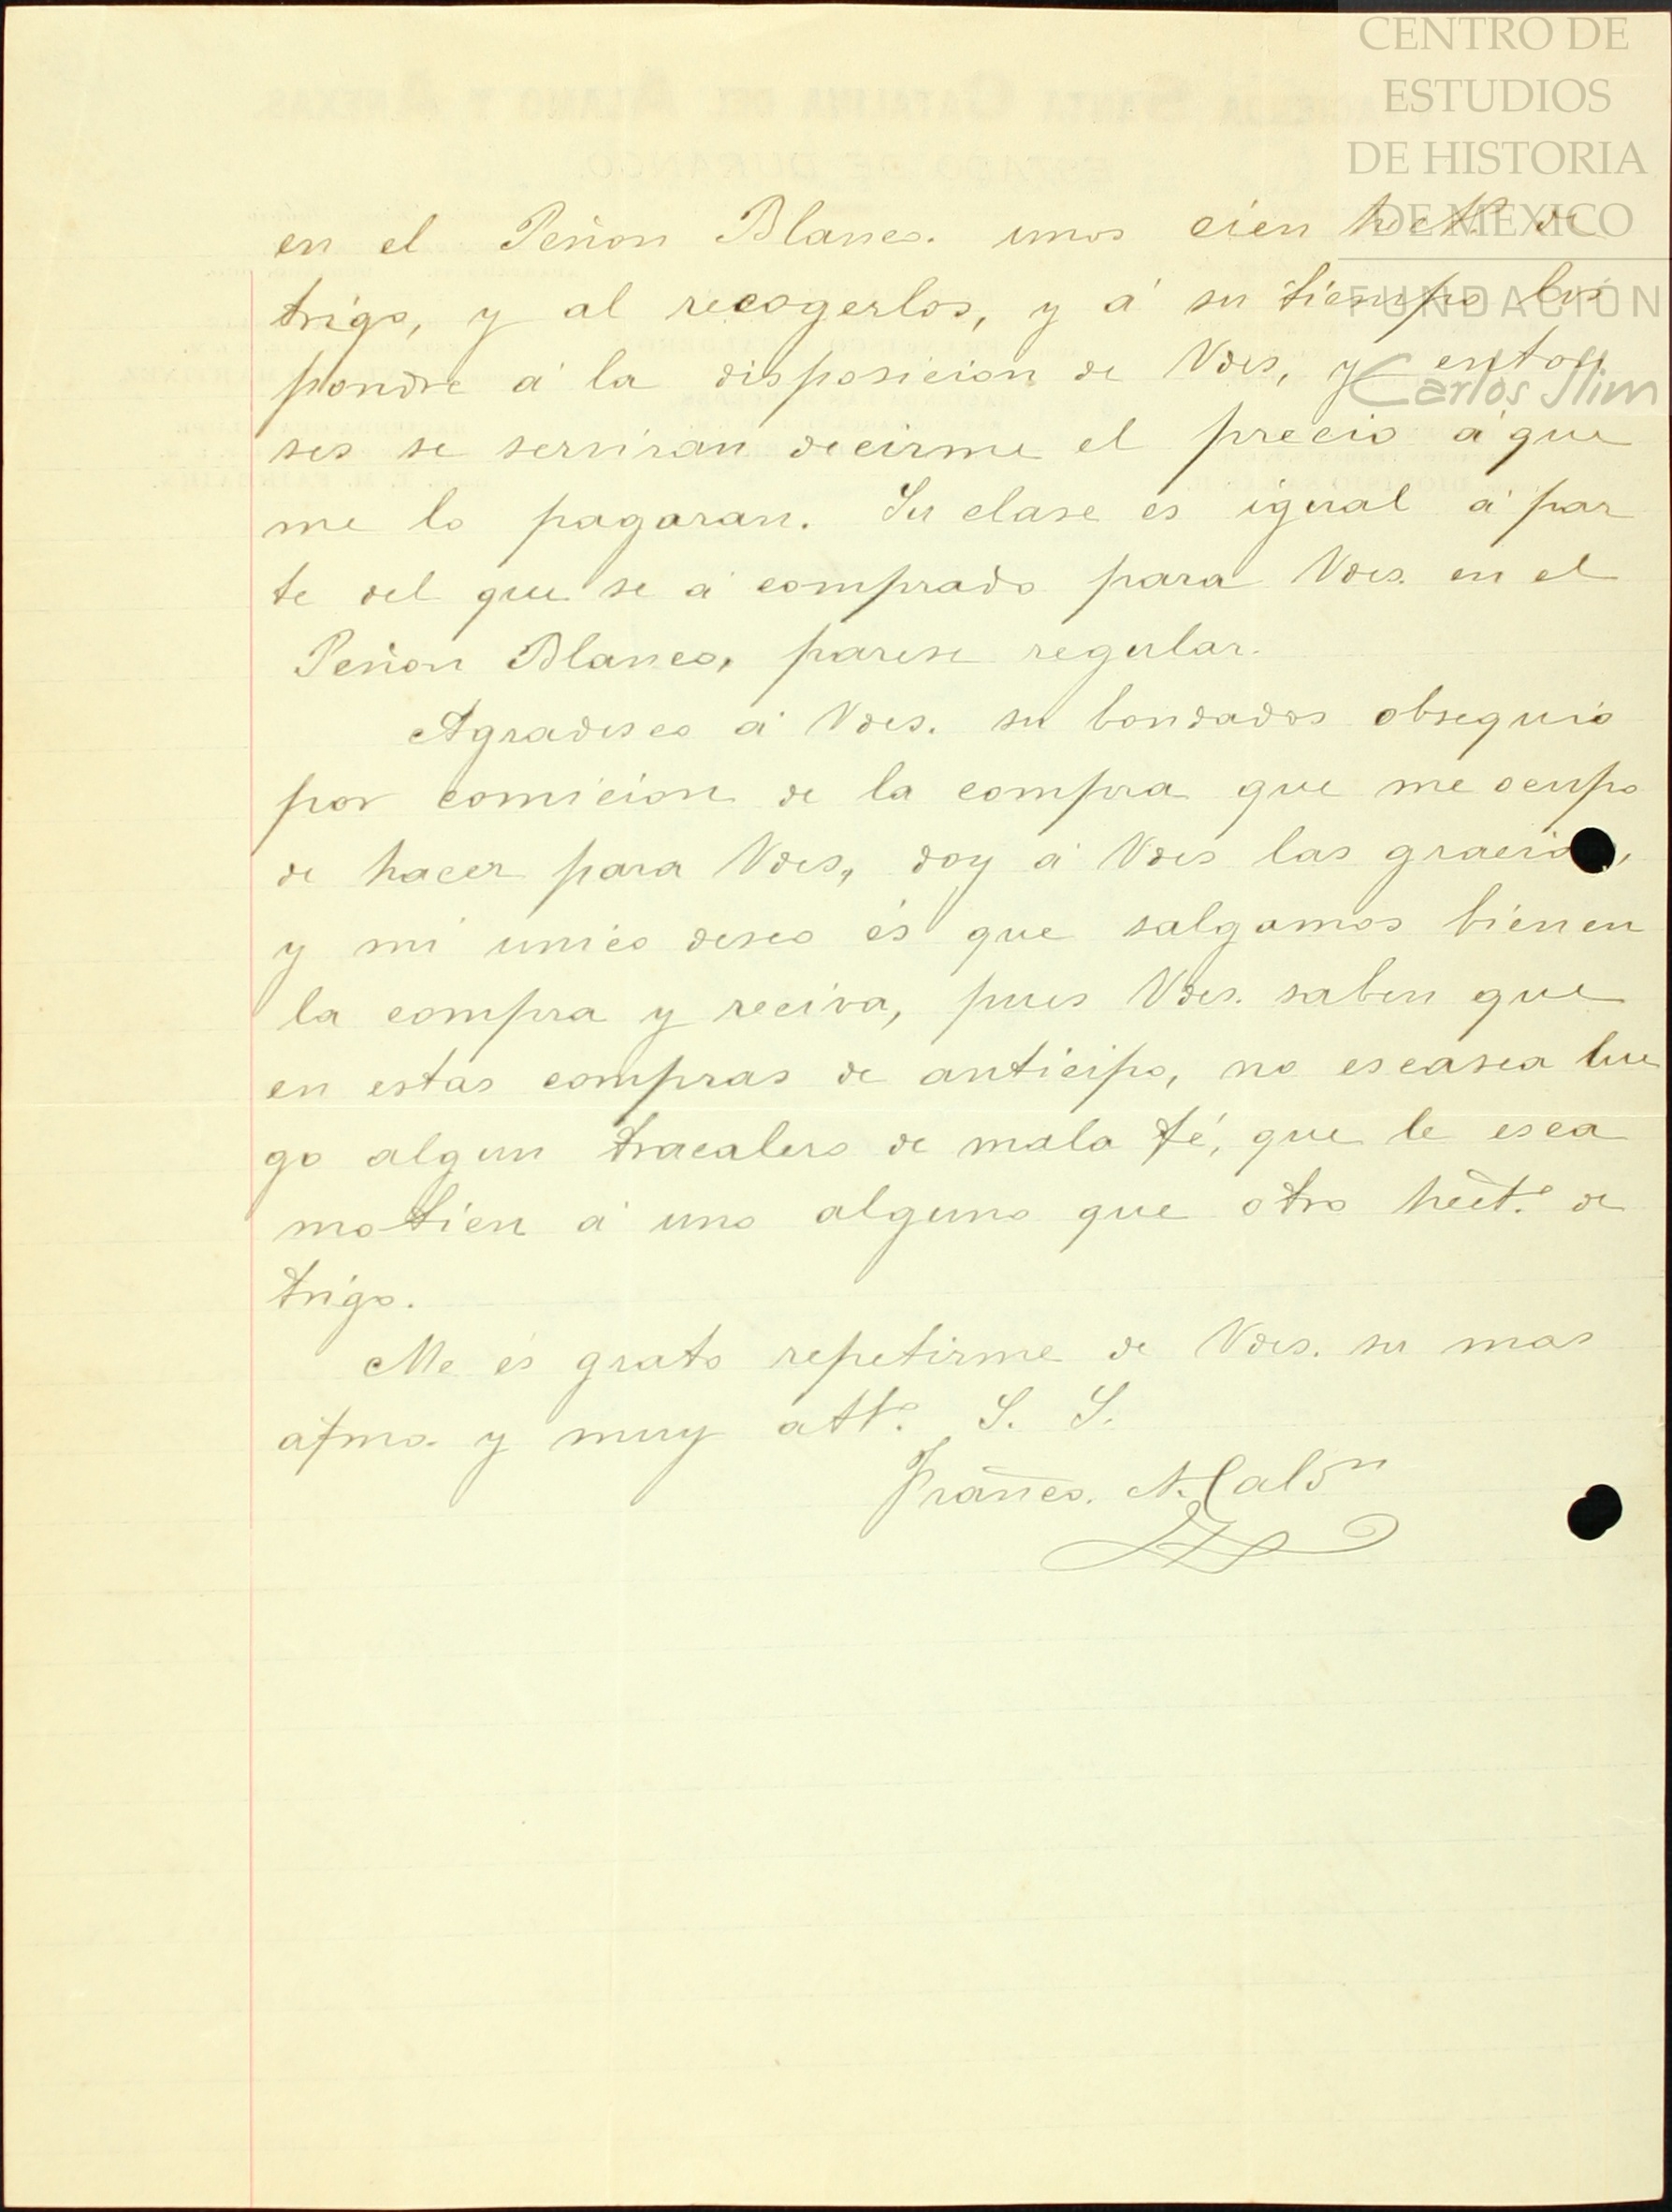 CENTRO DE
ESTUDIOS
DE HISTORIA
DE MEXICO
FUNDACIÓN
Carlos Slim
en el Peñon Blanco. unos cien hect.s de
trigo, y al recogerlos, y á su tiempo los
pondre á la disposicion de Vdes, y enton
ses se serviran decirme el precio á que
me lo pagaran. Su clase es igual á par
te del que se á comprado para Vdes. en el
Peñon Blanco, parese regular.
Agradesco á Vdes. su bondados obsequio
por comicion de la compra que me ocupo
de hacer para Vdes,, doy á Vdes las gracias,
y mi unico deseo és que salgamos bien en
la compra y reciva, pues Vdes. saben que
en estas compras de anticipo, no escasea lue
go algun tracalero de mala fé, que le esca
motien á uno alguno que otro hect.o de
trigo.
Me es grato repetirme de Vdes. su mas
afmo. y muy att.o S. S.
Franco.